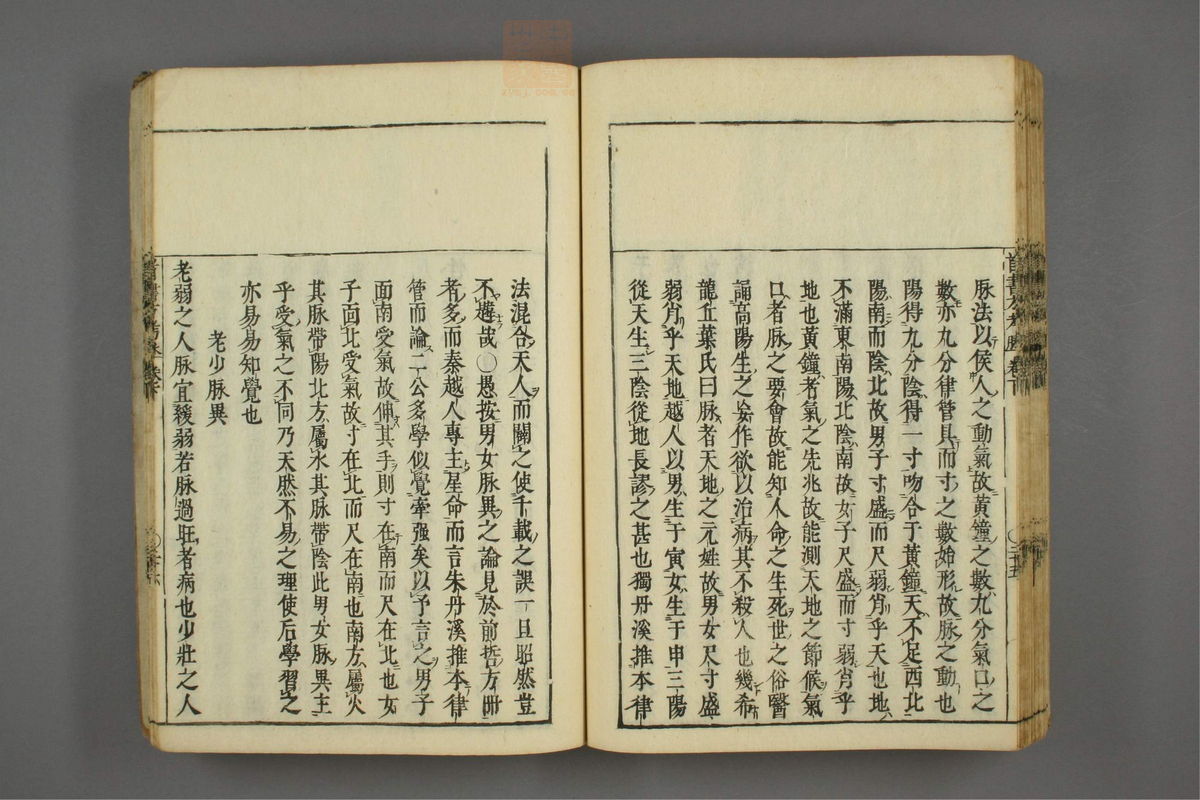 脉法以候人之動氣故黃鐘之數九分氣口之
數亦九分律管具而寸之數始形故脉之動也
陽得九分陰得一寸吻合于黃鐘天不足西北
陽南而陰北故男子寸盛而尺弱肖乎天也地
不滿東南陽北陰南故女子尺盛而寸弱肖乎
地也黃鐘者氣之先兆故能測天地之節候氣
口者脉之要會故能知人命之生死世之俗醫
誦高陽生之妄作欲以治病其不殺人也幾希
龍丘葉氏曰脉者天地之元姓故男女尺寸盛
弱肖乎天地越人以男生于寅女生于申三陽
從天生三陰從地長謬之甚也獨丹溪推本律
法混合天人而闢之使千載之誤一旦昭然豈
不韙哉〇愚按男女脉異之論見於前哲方冊
者多而秦越人專主星命而言朱丹溪推本律
管而論二公多學似覺牽强矣以予言之男子
面南受氣故伸其手則寸在南而尺在北也女
子面北受氣故寸在北而尺在南也南方屬火
其脉帶陽北方屬水其脉帶陰此男女脉異主
乎受氣之不同乃天然不易之理使后學習之
亦易易知覺也
老少脉異
老弱之人脉宜緩弱若脉過旺者病也少壯之人